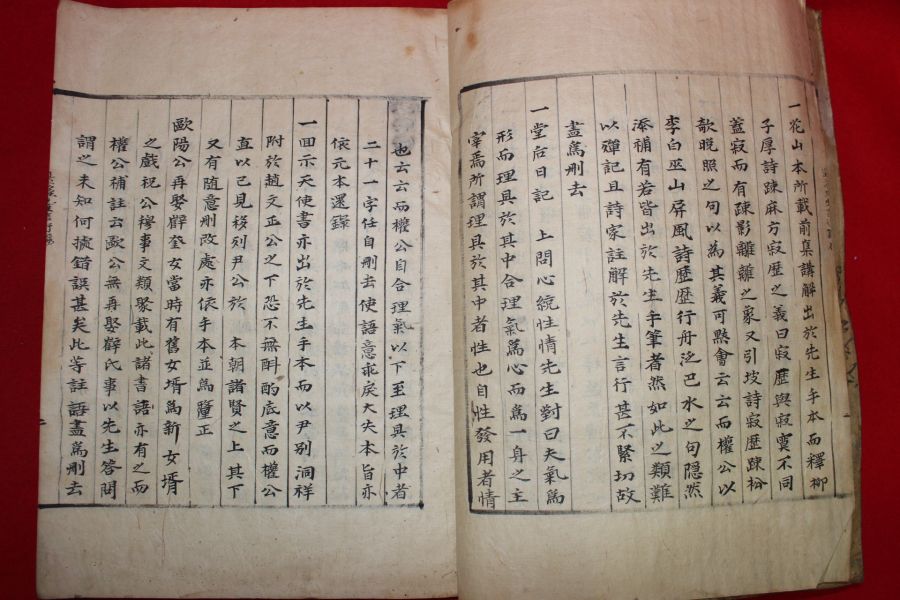 一花山本所載前集講解出於先生手本而釋柳
子厚詩踈麻方寂歷之義曰寂歷與寂寞不同
蓋寂而有踈影離離之象又引坡詩寂歷踈松
欹晩照之句以為其義可黙會云云而權公以
李白巫山屏風詩歷歷行舟泛巴水之句隱然
添補有若皆出於先生手筆者然如此之類難
以殫記且詩家註解於先生言行甚不緊切故
盡為刪去
一堂后日記 上問心統性情先生對曰夫氣為
形而理具於其中合理氣為心而為一身之主
宰焉所謂理具於其中者性也自性發用者情
也云云而權公自合理氣以下至理具於中者
二十一字任自刪去使語意乖戾大失本旨亦
依元本還錄
一回示天使書亦出於先生手本而以尹別洞祥
附於趙文正公之下恐不無斟酌底意而權公
直以己見移列尹公於 本朝諸賢之上其下
又有随意刪改處亦依手本並為釐正
歐陽公再娶薜奎女當時有舊女壻為新女壻
之戲祝公穆事文類聚載此諸書語亦有之而
權公補註云歐公無再娶薜氏事以先生答問
謂之未知何據錯誤甚矣此等註語盡為刪去
二